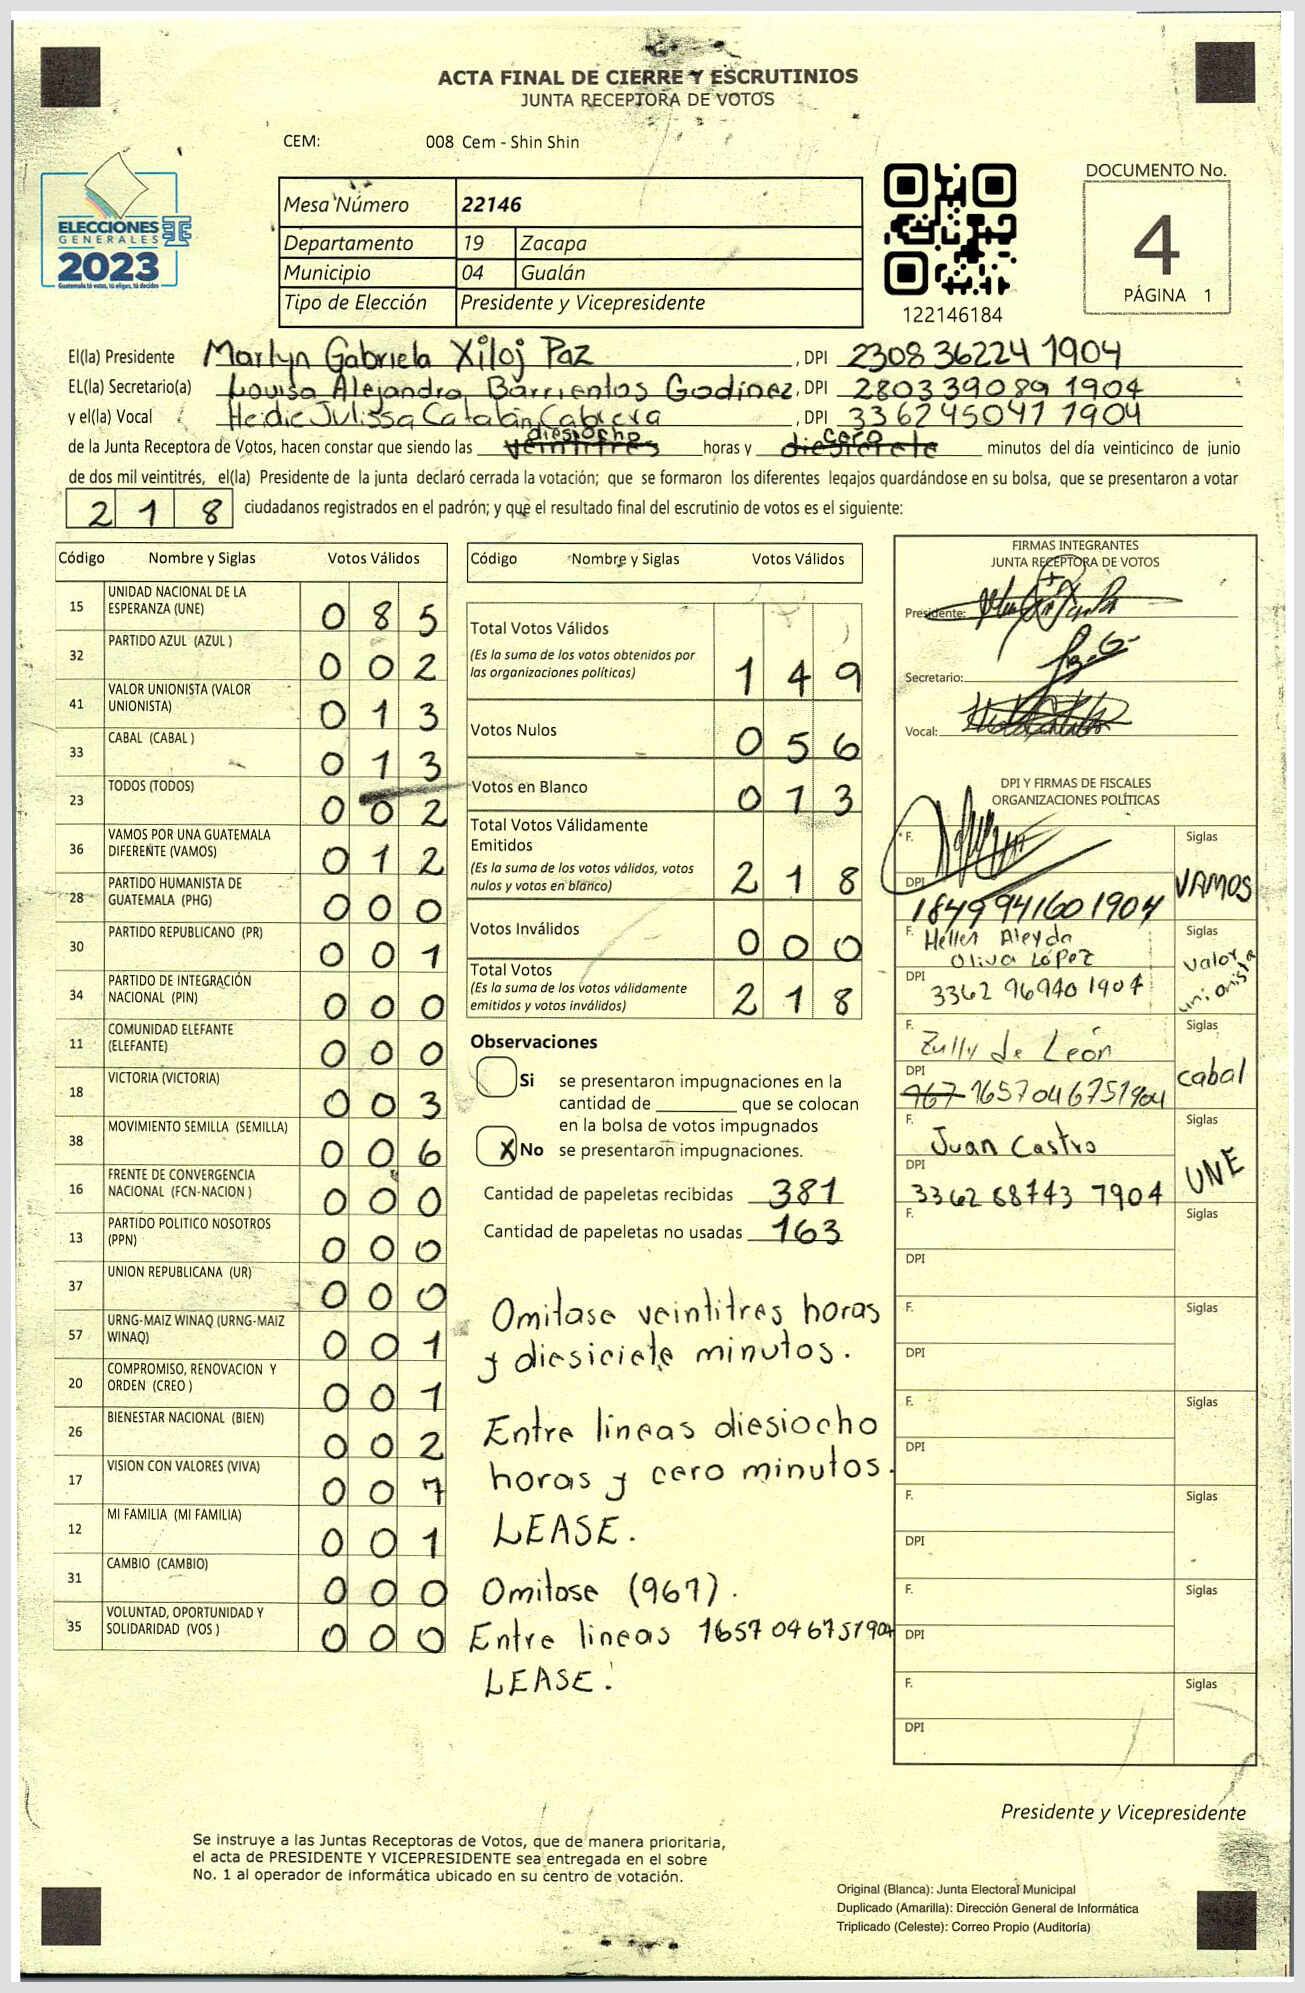 ACTA FINAL DE CIERRE Y ESCRUTINIOS
JUNTA RECEPTORA DE VOTOS
CEM: 008 Cem - Shin Shin
ELECCIONES
GENERALES
2023
Guatemala tú votas, tú eliges, tú decides
Mesa Número 22146
Departamento 19 Zacapa
Municipio 04 Gualán
Tipo de Elección Presidente y Vicepresidente
122146184
DOCUMENTO No.
4
PÁGINA 1
El(la) Presidente Marlyn Gabriela Xiloj Paz, DPI 2308 36224 1904
EL(la) Secretario(a) Louisa Alejandra Barrientos Godinez, DPI 280339089 1904
y el(la) Vocal Heidie Julissa Catalán Cabrera, DPI 336245041 1904
diesiocho cero
de la Junta Receptora de Votos, hacen constar que siendo las veintitres horas y diesiciete minutos del día veinticinco de junio
de dos mil veintitrés, el(la) Presidente de la junta declaró cerrada la votación; que se formaron los diferentes legajos quardándose en su bolsa, que se presentaron a votar
218 ciudadanos registrados en el padrón; y que el resultado final del escrutinio de votos es el siguiente:
Código Nombre y Siglas Votos Válidos
15 UNIDAD NACIONAL DE LA ESPERANZA (UNE) 085
32 PARTIDO AZUL (AZUL ) 002
41 VALOR UNIONISTA (VALOR UNIONISTA) 013
33 CABAL (CABAL ) 013
23 TODOS (TODOS) 002
36 VAMOS POR UNA GUATEMALA DIFERENTE (VAMOS) 012
28 PARTIDO HUMANISTA DE GUATEMALA (PHG) 000
30 PARTIDO REPUBLICANO (PR) 001
34 PARTIDO DE INTEGRACIÓN NACIONAL (PIN) 000
11 COMUNIDAD ELEFANTE (ELEFANTE) 000
18 VICTORIA (VICTORIA) 003
38 MOVIMIENTO SEMILLA (SEMILLA) 006
16 FRENTE DE CONVERGENCIA NACIONAL (FCN-NACION ) 000
13 PARTIDO POLITICO NOSOTROS (PPN) 000
37 UNION REPUBLICANA (UR) 000
57 URNG-MAIZ WINAQ (URNG-MAIZ WINAQ) 001
20 COMPROMISO, RENOVACION Y ORDEN (CREO ) 001
26 BIENESTAR NACIONAL (BIEN) 002
17 VISION CON VALORES (VIVA) 007
12 MI FAMILIA (MI FAMILIA) 001
31 CAMBIO (CAMBIO) 000
35 VOLUNTAD, OPORTUNIDAD Y SOLIDARIDAD (VOS ) 000
Código Nombre y Siglas Votos Válidos
Total Votos Válidos 149
(Es la suma de los votos obtenidos por
las organizaciones políticas)
Votos Nulos 056
Votos en Blanco 013
Total Votos Válidamente
Emitidos 218
(Es la suma de los votos válidos, votos
nulos y votos en blanco)
Votos Inválidos 000
Total Votos 218
(Es la suma de los votos válidamente
emitidos y votos inválidos)
Observaciones
Si se presentaron impugnaciones en la
cantidad de ________ que se colocan
en la bolsa de votos impugnados
X No se presentaron impugnaciones.
Cantidad de papeletas recibidas 381
Cantidad de papeletas no usadas 163
Omitase veintitres horas
y diesiciete minutos.
Entre lineas diesiocho
horas y cero minutos.
LEASE.
Omitase (967).
Entre lineas 1657046751904
LEASE.
FIRMAS INTEGRANTES
JUNTA RECEPTORA DE VOTOS
Presidente:
Secretario:
Vocal:
DPI Y FIRMAS DE FISCALES
ORGANIZACIONES POLÍTICAS
F. Siglas
VAMOS
DPI
1849941601904
F. Hellen Aleyda Siglas
Oliva López
valor unionista
DPI
3362 96940 1904
F. Siglas
Zully de León
cabal
DPI
967 1657046751904
F. Siglas
Juan Castro
UNE
DPI
3362 68743 1904
F. Siglas
DPI
F. Siglas
DPI
F. Siglas
DPI
F. Siglas
DPI
F. Siglas
DPI
F. Siglas
DPI
Presidente y Vicepresidente
Se instruye a las Juntas Receptoras de Votos, que de manera prioritaria,
el acta de PRESIDENTE Y VICEPRESIDENTE sea entregada en el sobre
No. 1 al operador de informática ubicado en su centro de votación.
Original (Blanca): Junta Electoral Municipal
Duplicado (Amarilla): Dirección General de Informática
Triplicado (Celeste): Correo Propio (Auditoría)